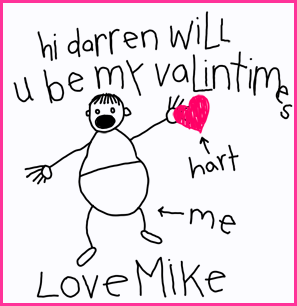 hi darren WiLL
u be my vaLintimes
hart
me
Love Mike